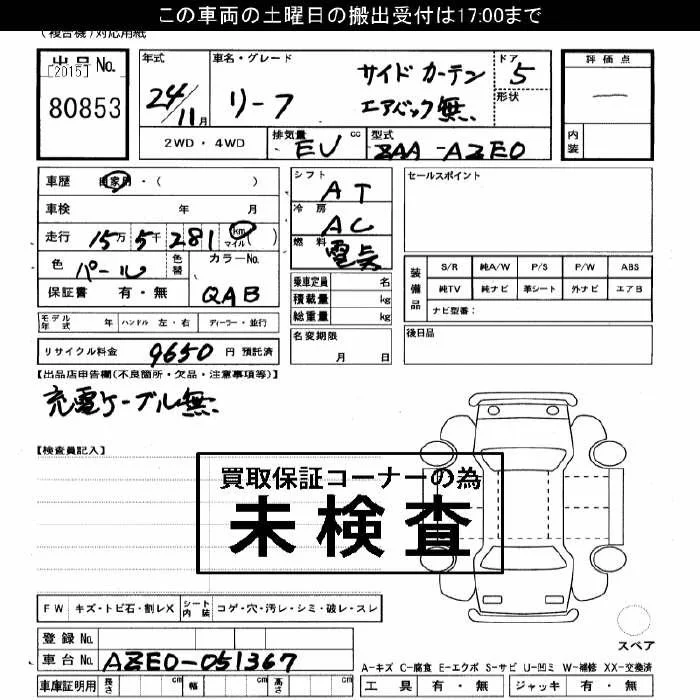 この車両の土曜日の搬出受付は17:00まで
(複合機)対応用紙
出品No.
[2015]
80853
年式
24/11月
車名・グレード
リーフ
サイド カーテン
エアバック無.
ドア
5
形状
評価点
—
内装
2WD・4WD
排気量
EV
cc
型式
ZAA-AZE0
車歴
自家用・(　　　)
車検
年　月
走行
15万5千281
km
マイル
(　)
色
パール
色替
カラーNo.
QAB
保証書
有・無
シフト
AT
冷房
AC
燃料
電気
乗車定員
名
積載量
kg
総重量
kg
セールスポイント
装備品
S/R
純A/W
P/S
P/W
ABS
純TV
純ナビ
革シート
外ナビ
エアB
ナビ型番:
モデル年式
年
ハンドル
左・右
ディーラー・並行
名変期限
月　日
後日品
リサイクル料金
9650
円 預託済
【出品店申告欄(不良箇所・欠品・注意事項等)】
充電ケーブル無.
【検査員記入】
買取保証コーナーの為
未検査
FW
キズ・トビ石・割レX
シート内装
コゲ・穴・汚レ・シミ・破レ・スレ
登録No.
車台No.
AZE0-051367
スペア
A-キズ C-腐食 E-エクボ S-サビ U-凹ミ W-補修 XX-交換済
車庫証明用
長さ
cm
幅
cm
高さ
cm
工具
有・無
ジャッキ
有・無